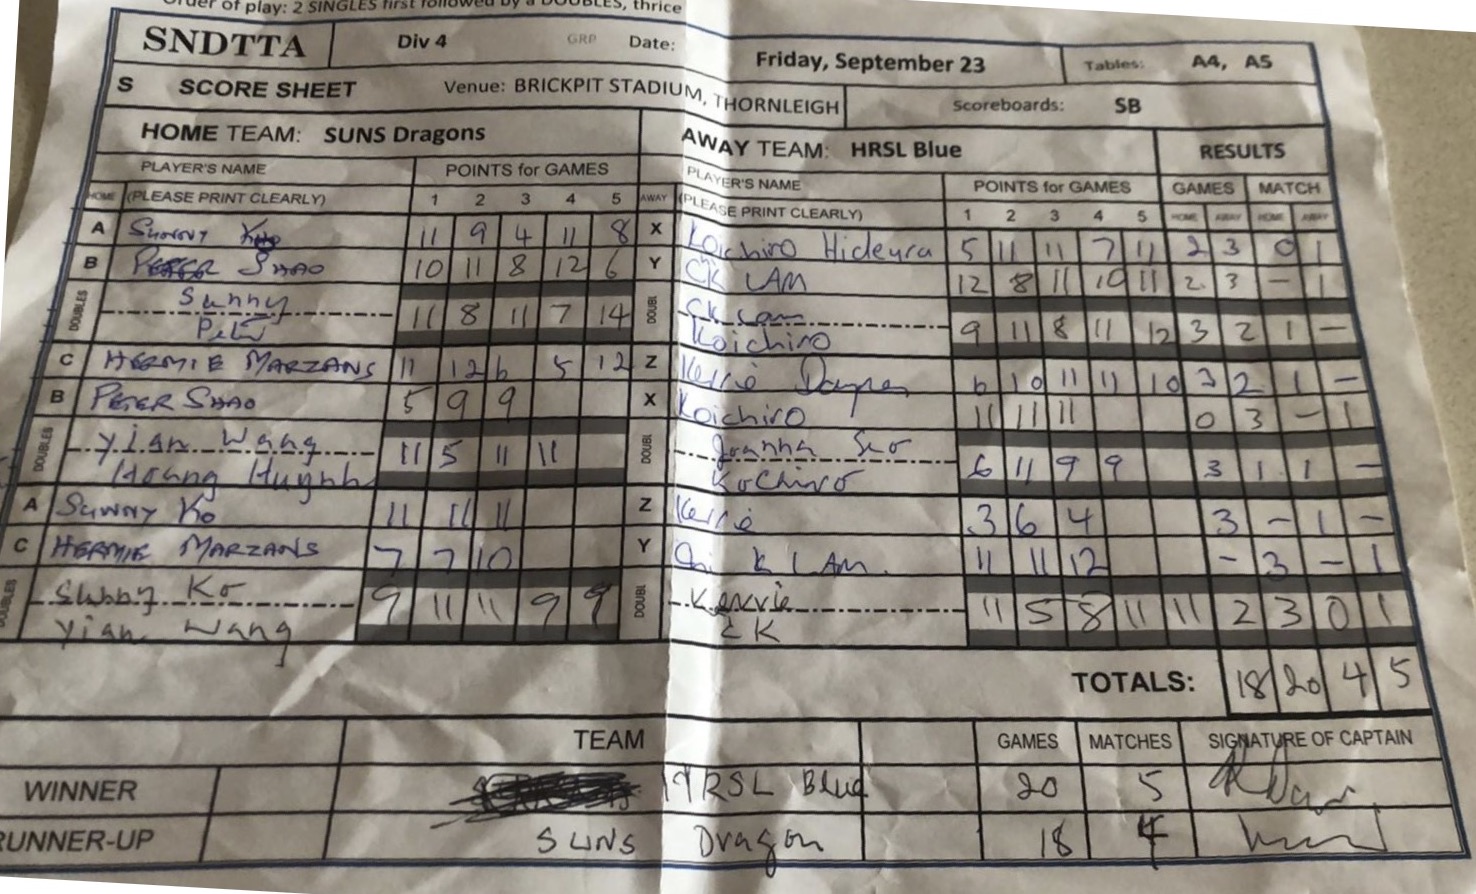 Order of play: 2 SINGLES first followed by a DOUBLES, thrice
SNDTTA Div 4 GRP Date: Friday, September 23 Tables: A4, A5
S SCORE SHEET Venue: BRICKPIT STADIUM, THORNLEIGH Scoreboards: SB
HOME TEAM: SUNS Dragons AWAY TEAM: HRSL Blue RESULTS
PLAYER'S NAME POINTS for GAMES PLAYER'S NAME POINTS for GAMES GAMES MATCH
HOME (PLEASE PRINT CLEARLY) 1 2 3 4 5 AWAY (PLEASE PRINT CLEARLY) 1 2 3 4 5 HOME AWAY HOME AWAY
A Sunny Ko 11 9 4 11 8 X Koichiro Hideura 5 11 11 7 11 2 3 0 1
B PETER SHAO 10 11 8 12 6 Y CK LAM 12 8 11 10 11 2 3 - 1
DOUBLES Sunny 11 8 11 7 14 DOUBL CK Lam 9 11 8 11 12 3 2 1 -
Peter Koichiro
C HERMIE MARZANS 11 12 6 5 12 Z Kerrie 6 10 11 11 10 3 2 1 -
B PETER SHAO 5 9 9 X Koichiro 11 11 11 0 3 - 1
DOUBLES Yian Wang 11 5 11 11 DOUBL Joanna Seo 6 11 9 9 3 1 1 -
Hoang Huynh Kochiro
A SUNNY KO 11 11 11 Z Kerrie 3 6 4 3 - 1 -
C HERMIE MARZANS 7 7 10 Y Chi K LAM. 11 11 12 - 3 - 1
DOUBLES Sunny Ko 9 11 11 9 9 DOUBL Kerrie 11 5 8 11 11 2 3 0 1
Yian Wang CK
TOTALS: 18 20 4 5
TEAM GAMES MATCHES SIGNATURE OF CAPTAIN
WINNER HRSL Blue 20 5
RUNNER-UP SUNS Dragon 18 4